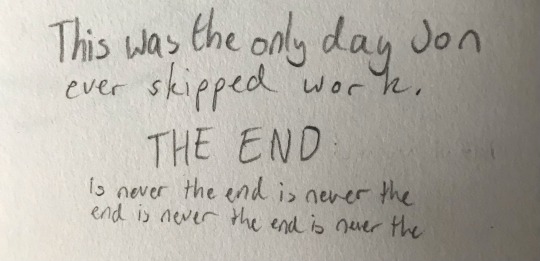 This was the only day Jon
ever skipped work.
THE END
is never the end is never the
end is never the end is never the